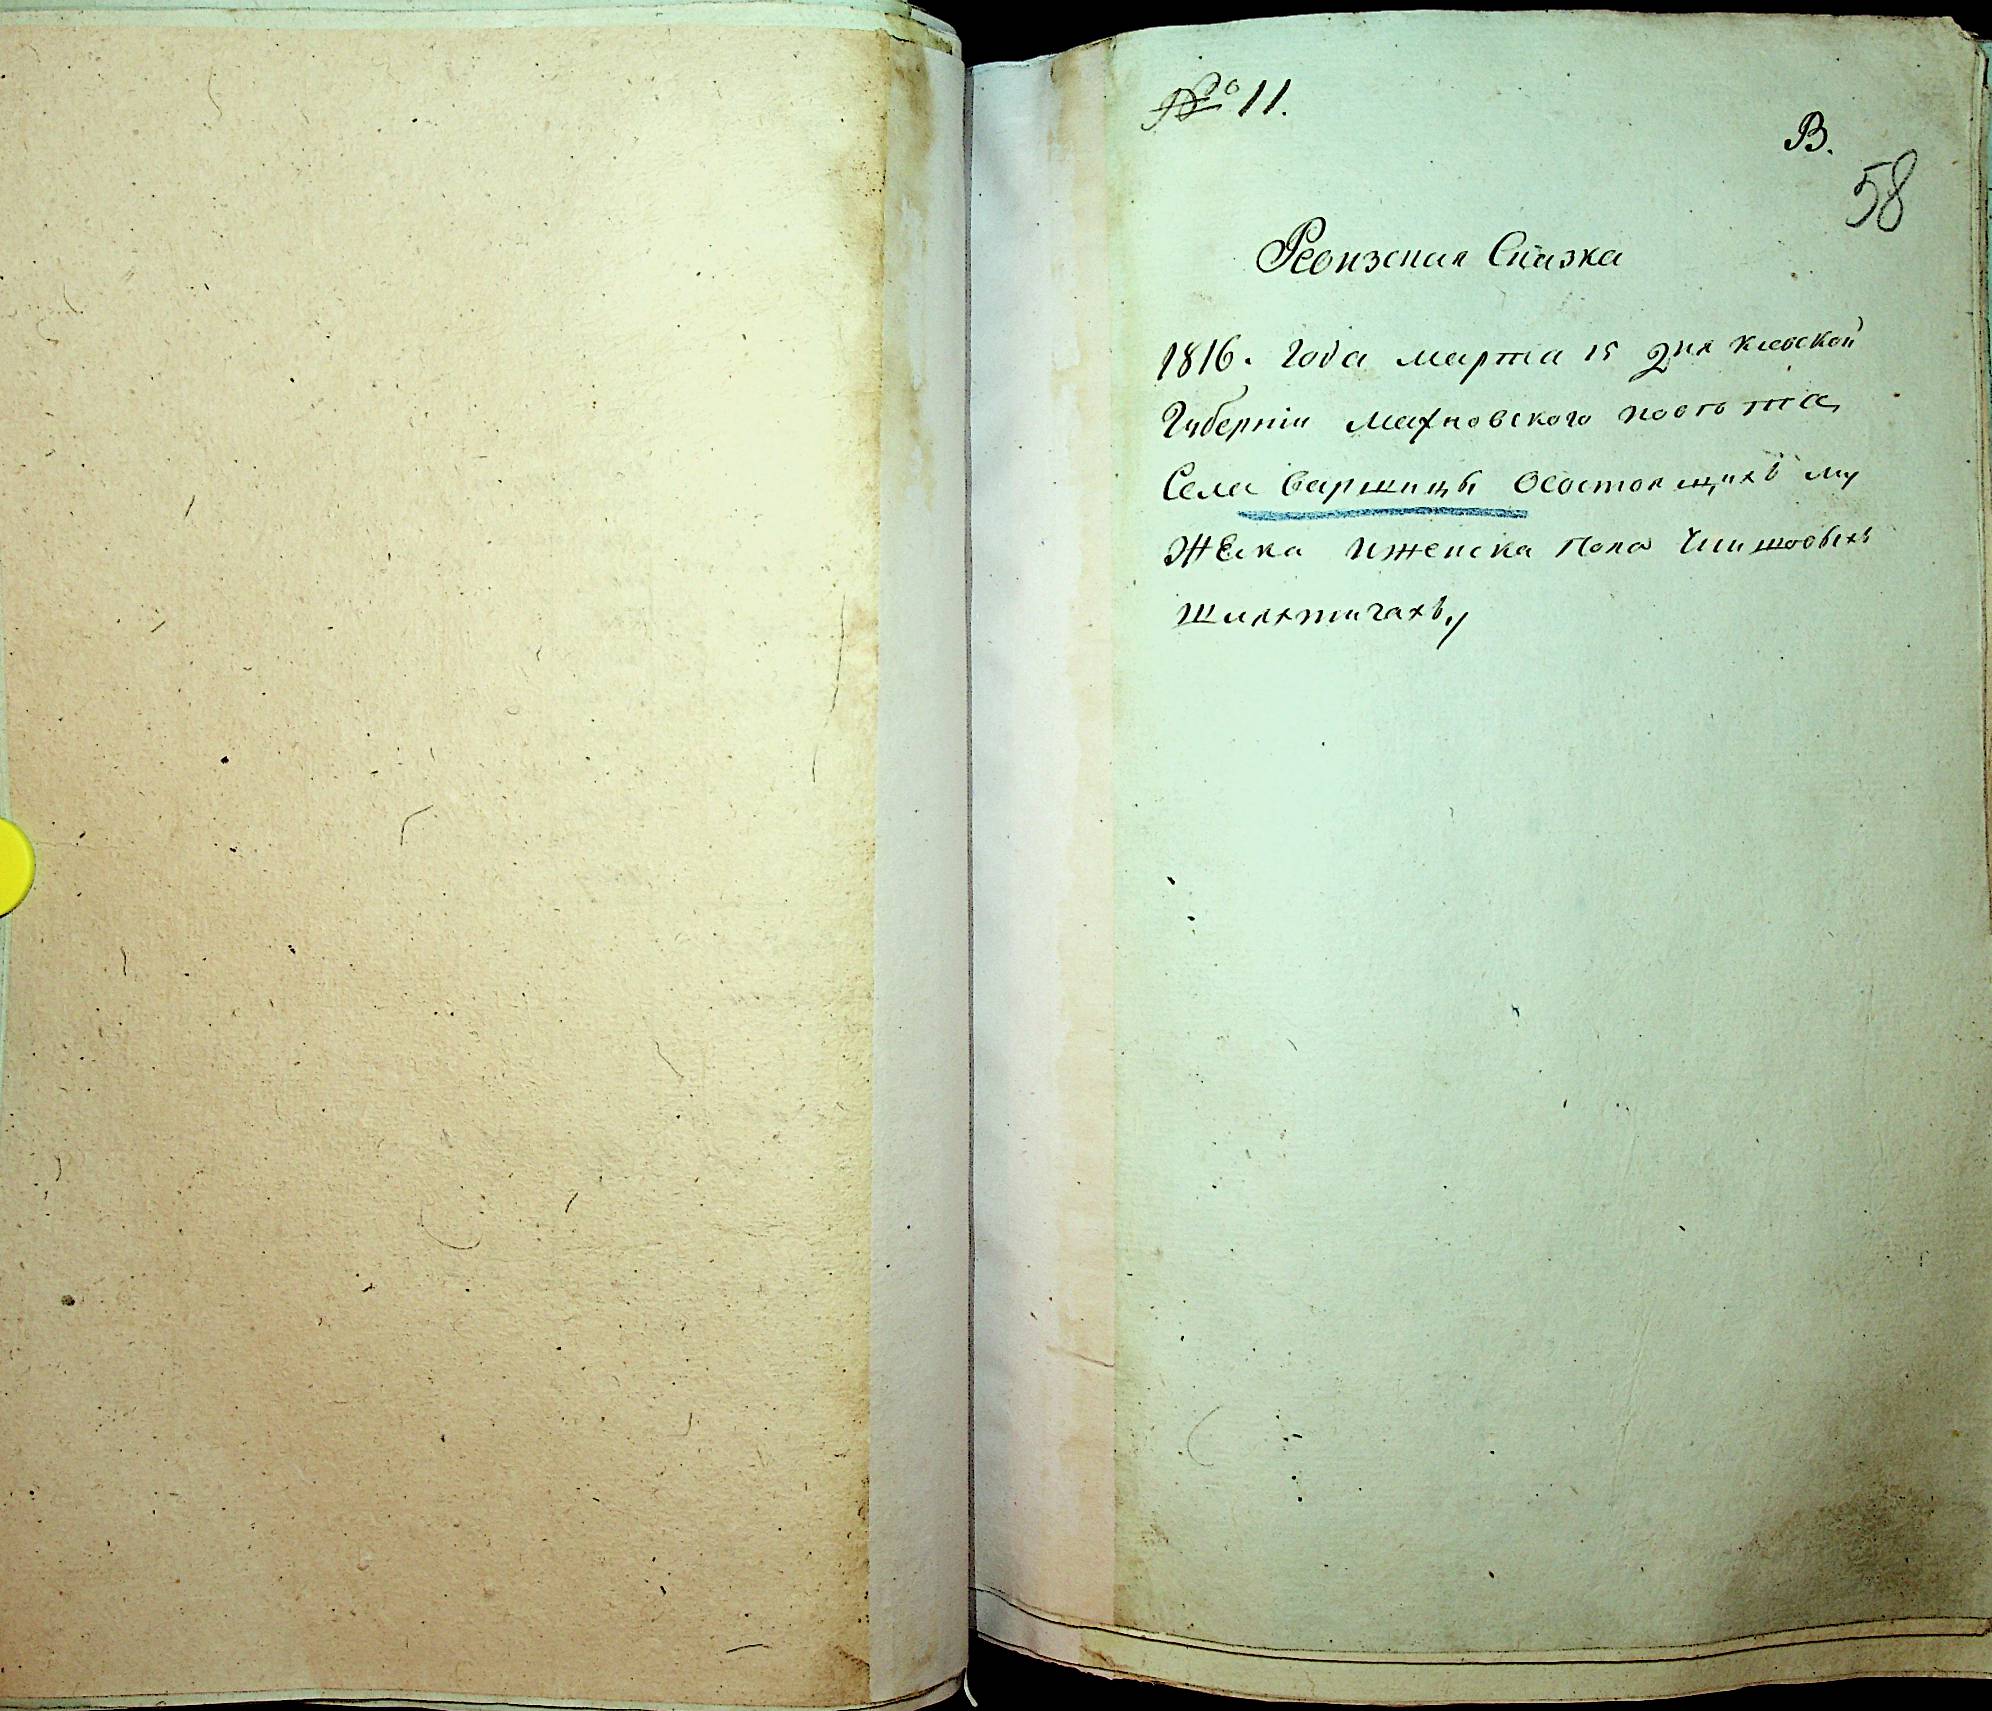 № 11.
В.
58
Ревизская Сказка
1816. Года марта 15 дня Киевской
Губернiи Махновского повѣта
Села Варшицы Осостоящихъ му
жеска иженска пола Чиншовыхъ
шляхтичахъ,